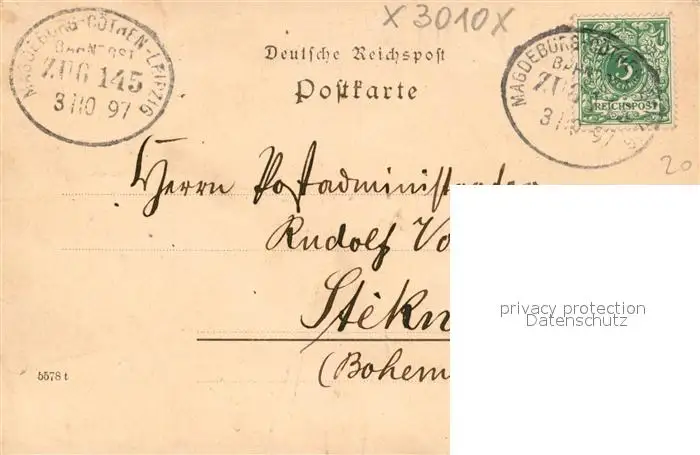 X 3010 X
MAGDEBURG-CÖTHEN-LEIPZIG
BAHNPOST
ZUG 145
3 110 97
Deutsche Reichspost
Postkarte
MAGDEBURG
ZUG
3 10 97
5
REICHSPOST
20
Herrn Postadministrator
Rudolf
Stěkn
(Bohem
privacy protection
Datenschutz
5578 t